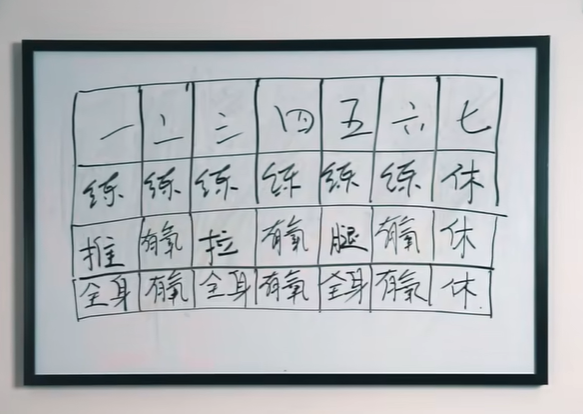 一 二 三 四 五 六 七
练 练 练 练 练 练 休
推 有氧 拉 有氧 腿 有氧 休
全身 有氧 全身 有氧 全身 有氧 休